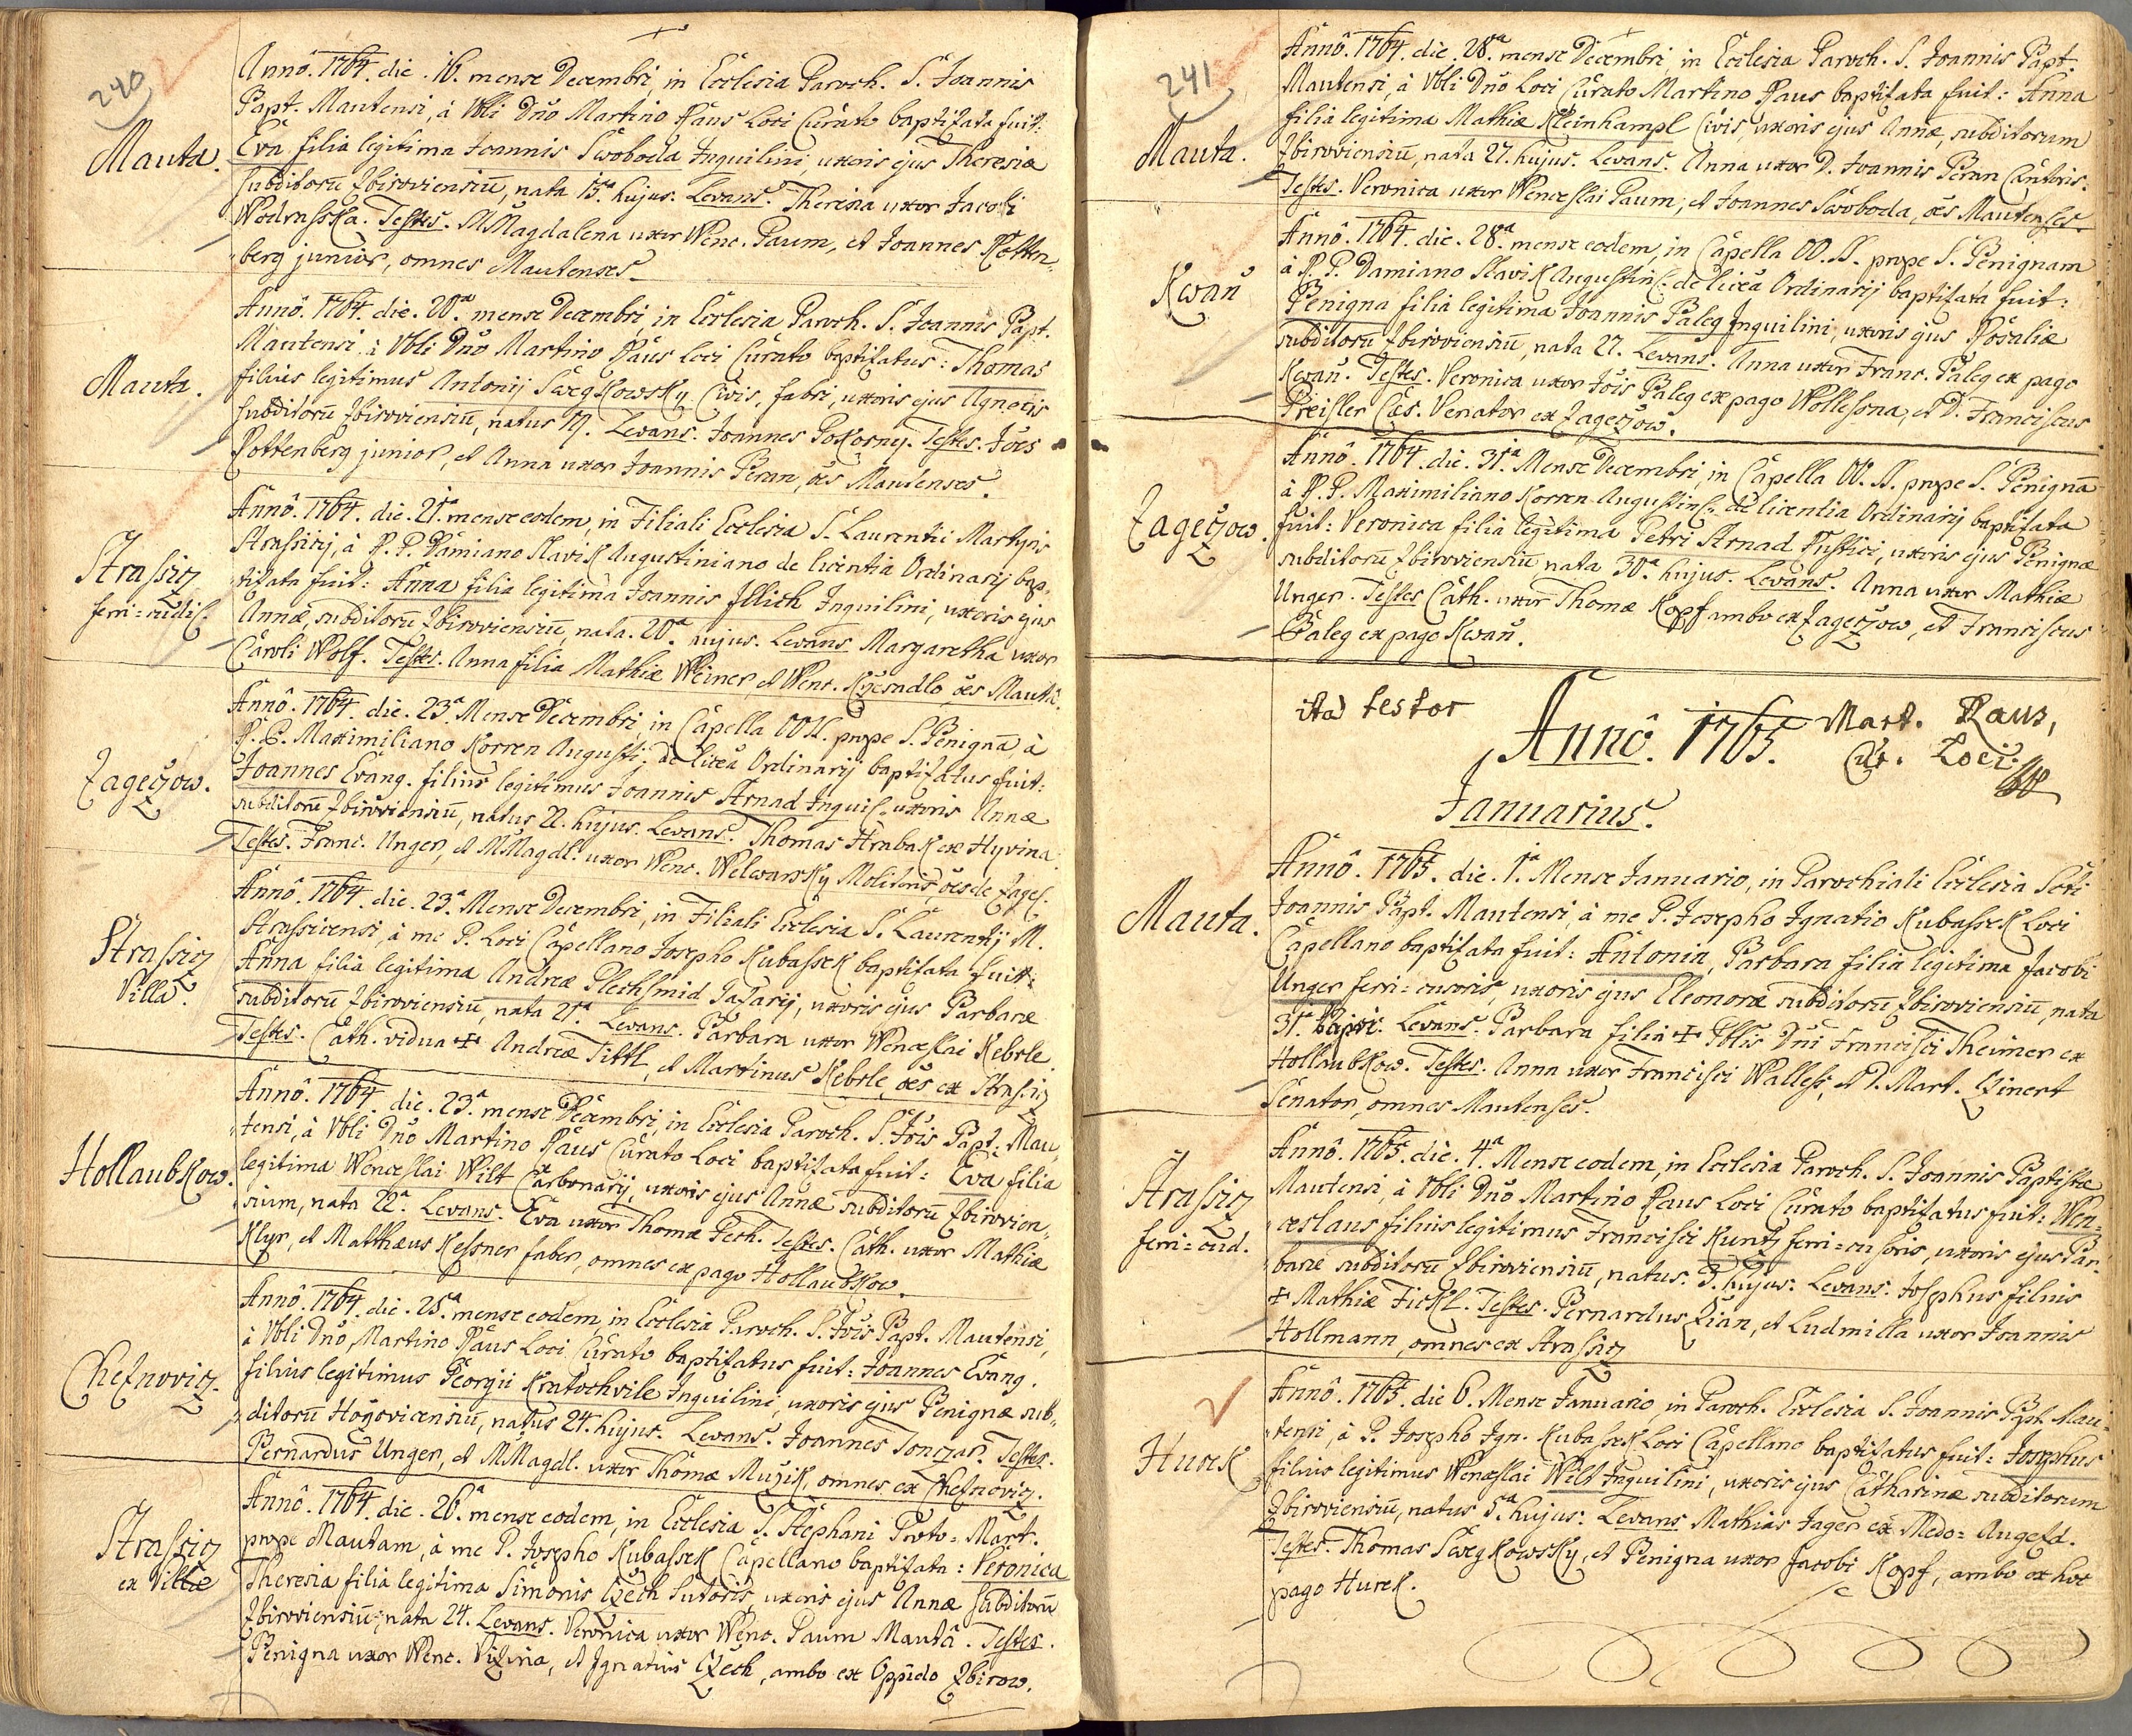 240
Mauta.
Annô. 1764. die. 16. mense Decembri, in Ecclesia Paroch. S. Joannis
Bapt. Mautensi, à Vbli Dnô Martino Raus Loci Curato baptizata fuit:
Eva filia legitima Joannis Swoboda Inquilini, uxoris ejus Theresiæ
subditorū Zbiroviensiū, nata 15ª. hujus. Levans. Theresia uxor Jacobi
Wodraska. Testes. M Magdalena uxor Wenc. Paum, et Joannes Rotten-
berg junior, omnes Mautenses.
Mauta.
Annô. 1764. die. 20ª. mense Decembri, in Ecclesia Paroch. S. Joannis Bapt.
Mautensi à Vbli Dnô Martino Raus Loci Curato baptizatus: Thomas
filius legitimus Antonij Swegkowsky Civis, fabri, uxoris ejus Agnetis
subditorū Zbiroviensiū, natus 19. Levans. Joannes Pokorny. Testes. Jões
Rottenberg junior, et Anna uxor Joannis Beran, ões Mautenses.
Strasßicz
ferri-cudiſ.
Annô. 1764. die. 21ª. mense eodem, in Filiali Ecclesia S. Laurentii Martyris
Strassicij, à R. P. Damiano Slavik Augustiniano de licentia Ordinarij bap-
tizata fuit: Anna filia legitima Joannis Illich Inquilini, uxoris ejus
Annæ, subditorū Zbiroviensiū, nata. 20ª. hujus. Levans. Margaretha uxor
Caroli Wolf. Testes. Anna filia Mathiæ Weiner, et Wenc. Kyesadlo, ões Mautâ.
Zageczow.
Annô. 1764. die. 23ª. Mense Decembri, in Capella OO N. prope S. Benignā, à
R. P. Maximiliano Korren Augusti: de licēa Ordinarij baptizatus fuit:
Joannes Evang. filius legitimus Joannis Arnad Inquil. uxoris Annæ
subditorū Zbiroviensiū, natus 22. hujus. Levans. Thomas Hrabak ex Hyvina.
Testes. Franc. Unger, et M Magdl. uxor Wenc. Welewansky Molitoris, ões de Zageſ.
Strasßicz
Villa.
Annô. 1764. die. 23ª. Mense Decembri, in Filiali Ecclesia S. Laurentij M.
Strassicensi, à me P. Loci Capellano Josepho Kubassek baptizata fuit:
Anna filia legitima Andreæ Plechsmid Tatarij, uxoris ejus Barbaræ
subditorū Zbiroviensiū, nata 21ª. Levans. Barbara uxor Wenceslai Kebrle.
Testes. Cath. vidua ✠ Andreæ Tittl, et Martinus Kebrle, ões ex Strasßicz
Hollaubkow.
Annô. 1764. die. 23ª. mense Decembri, in Ecclesia Paroch. S. Jõis Bapt. Mau-
tensi, à Vbli Dnô Martino Raus Curato Loci baptizata fuit: Eva filia
legitima Wenceslai Wilt Carbonarij, uxoris ejus Annæ subditorū Zbirovien-
sium, nata 22ª. Levans. Eva uxor Thomæ Pech. Testes. Cath. uxor Mathiæ
Klyr, et Matthæus Kessner faber, omnes ex pago Hollaubkow.
Cheznovicz.
Annô. 1764. die. 25ª. mense eodem, in Ecclesia Paroch. S. Jõis Bapt. Mautensi,
à Vbli Dnô, Martino Raus Loci Curato baptizatus fuit: Joannes Evang.
filius legitimus Georgii Kratochvile Inquilini, uxoris ejus Benignæ sub-
ditorū Hořovicensiū, natus 24. hujus. Levans. Joannes Tonczar. Testes.
Bernardus Unger, et M Magdl. uxor Thomæ Mužik, omnes ex Cheznovicz.
Strasßicz
ex Villæ
Annô. 1764. die. 26ª. mense eodem, in Ecclesia S. Stephani Proto-Mart.
prope Mautam, à me P. Josepho Kubassek Capellano baptizata: Veronica
Theresia filia legitima Simonis Czech Sutoris, uxoris ejus Annæ subditorū
Zbiroviensiū, nata 24. Levans. Veronica uxor Wenc. Paum Mautâ. Testes.
Benigna uxor Wenc. Vizina, et Ignatius Czech, ambo ex Oppido Zbirow.
241
Mauta.
Annô. 1764. die. 28ª. mense Decembri, in Ecclesia Paroch. S. Joannis Bapt.
Mautensi, à Vbli Dnô Loci Curato Martino Raus baptizata fuit: Anna
filia legitima Mathiæ Kleinhampl Civis, uxoris ejus Annæ, subditorum
Zbiroviensiū, nata 27. hujus. Levans. Anna uxor D. Joannis Beran Cantoris.
Testes. Veronica uxor Wenceslai Paum, et Joannes Swoboda, ões Mautenses.
Kwaň
Annô. 1764. die. 28ª. mense eodem, in Capella OO. N. prope S. Benignam
à R. P. Damiano Slavik Augustinſ: de licēa Ordinarij baptizata fuit:
Benigna filia legitima Joannis Paleg Inquilini, uxoris ejus Rosaliæ
subditorū Zbiroviensiū, nata 27. Levans. Anna uxor Franc. Paleg ex pago
Kwaň. Testes. Veronica uxor Jõis Paleg ex pago Wollessna, et D. Franciscus
Preisler Cæs. Venator ex Zageczow.
Zageczow.
Annô. 1764. die. 31ª. Mense Decembri, in Capella OO. N. prope S. Benignā
à R. P. Maximiliano Korren Augustinſ: de licentia Ordinarij baptizata
fuit: Veronica filia legitima Petri Arnad Rustici, uxoris ejus Benignæ
subditorū Zbiroviensiū nata 30ª. hujus. Levans. Anna uxor Mathiæ
Unger. Testes Cath. uxor Thomæ Kopf ambo ex Zageczow, et Franciscus
Paleg ex pago Kwaň.
ita testor
Annô. 1765.
Mart. Raus,
Cur. Loci.
Januarius.
Mauta.
Annô. 1765. die. 1ª. Mense Januario, in Parochiali Ecclesia Scti
Joannis Bapt. Mautensi, à me P. Josepho Ignatio Kubassek Loci
Capellano baptizata fuit: Antonia, Barbara filia legitima Jacobi
Unger ferri-cusoris, uxoris ejus Eleonoræ subditorū Zbiroviensiū, nata
31ª. Levans. Barbara filia ✠ Dni Francisci Theimer ex
Hollaubkow. Testes. Anna uxor Francisci Walless, et D. Mart. Czinert
Senator, omnes Mautenses.
Strasßicz
ferri-cud.
Annô. 1765. die. 4ª. Mense eodem, in Ecclesia Paroch. S. Joannis Baptistæ
Mautensi, à Vbli Dnô Martino Raus Loci Curato baptizatus fuit: Wen-
ceslaus filius legitimus Francisci Kuntz ferri-cusoris, uxoris ejus Bar-
baræ subditorū Zbiroviensiū, natus. 3. hujus: Levans. Josephus filius
✠ Mathiæ Fickl. Testes. Bernardus Zian, et Ludmilla uxor Joannis
Hollmann, omnes ex Strasßicz
Hurk
Annô. 1765. die 6. Mense Januario, in Paroch. Ecclesia S. Joannis Bapt. Mau-
tensi, à P. Josepho Ign. Kubassek Loci Capellano baptizatus fuit: Josephus
filius legitimus Wenceslai Wilt Inquilini, uxoris ejus Catharinæ subditorum
Zbiroviensiū, natus 5ª. hujus: Levans Mathias Jager ex Medo-Augezd.
Testes. Thomas Swegkowsky, et Benigna uxor Jacobi Kopf, ambo ex hoc
pago Hurek.